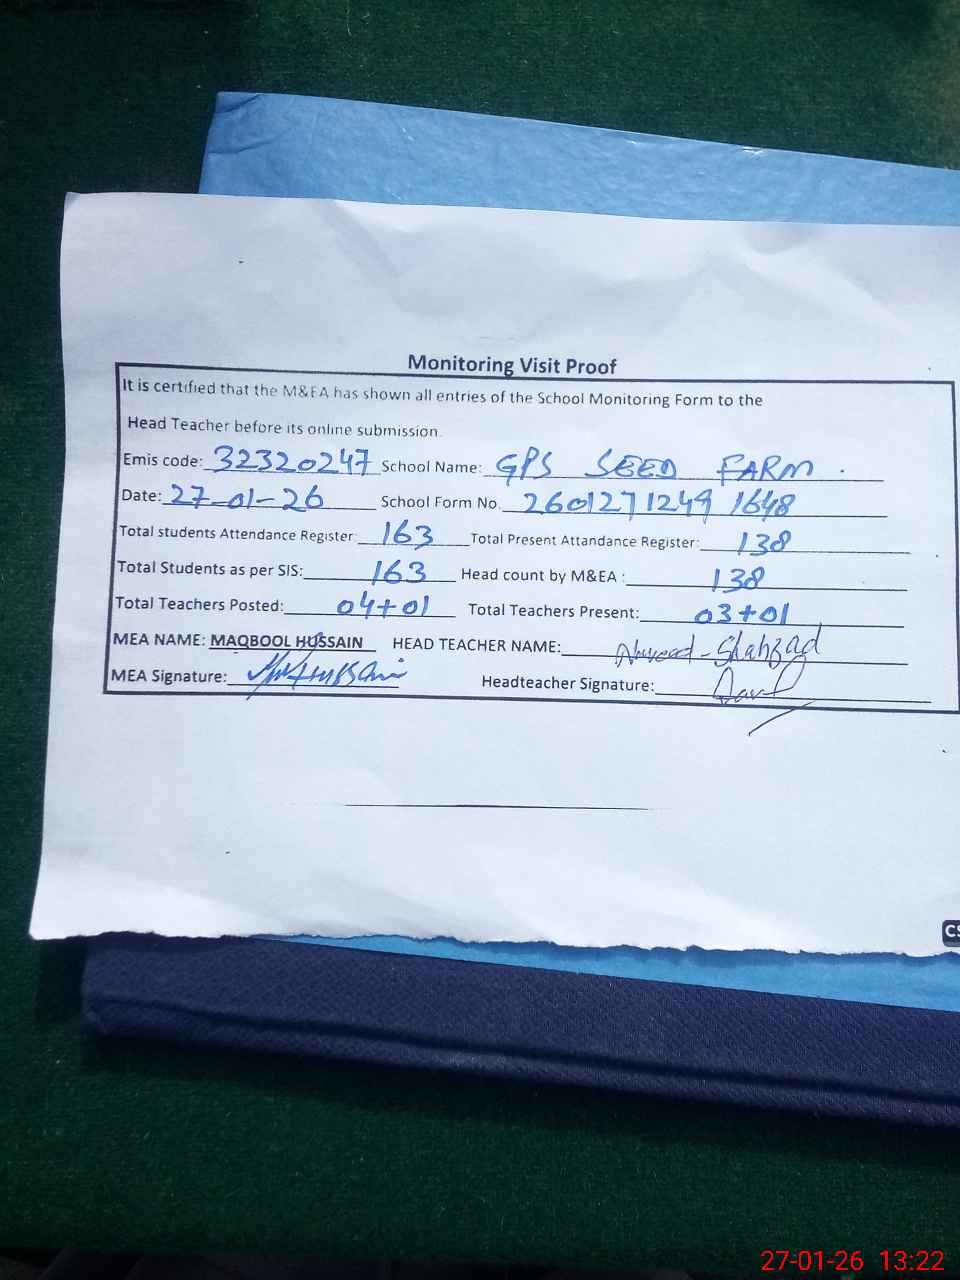 Monitoring Visit Proof
It is certified that the M&EA has shown all entries of the School Monitoring Form to the
Head Teacher before its online submission.
Emis code: 32320247 School Name: GPS SEED FARM.
Date: 27-01-26 School Form No. 2601271249 1648
Total students Attendance Register: 163 Total Present Attandance Register: 138
Total Students as per SIS: 163 Head count by M&EA : 138
Total Teachers Posted: 04+01 Total Teachers Present: 03+01
MEA NAME: MAQBOOL HUSSAIN HEAD TEACHER NAME: Shahzad
MEA Signature: Headteacher Signature:
CS
27-01-26 13:22